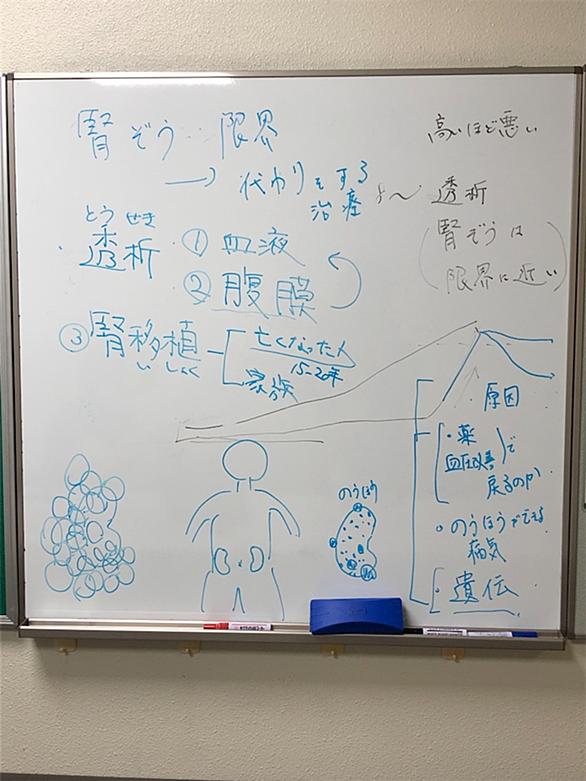 腎ぞう 限界
→ 代わりをする
治療
とう せき
・透析 ① 血液
② 腹膜
③ 腎移植
い しょく
亡くなった人
15-20年
家族
高いほど悪い
透析
(腎ぞうは
限界に近い)
原因
・薬
血圧改善
で
戻るのか
・のうほうができる
病気
・遺伝
のうほう